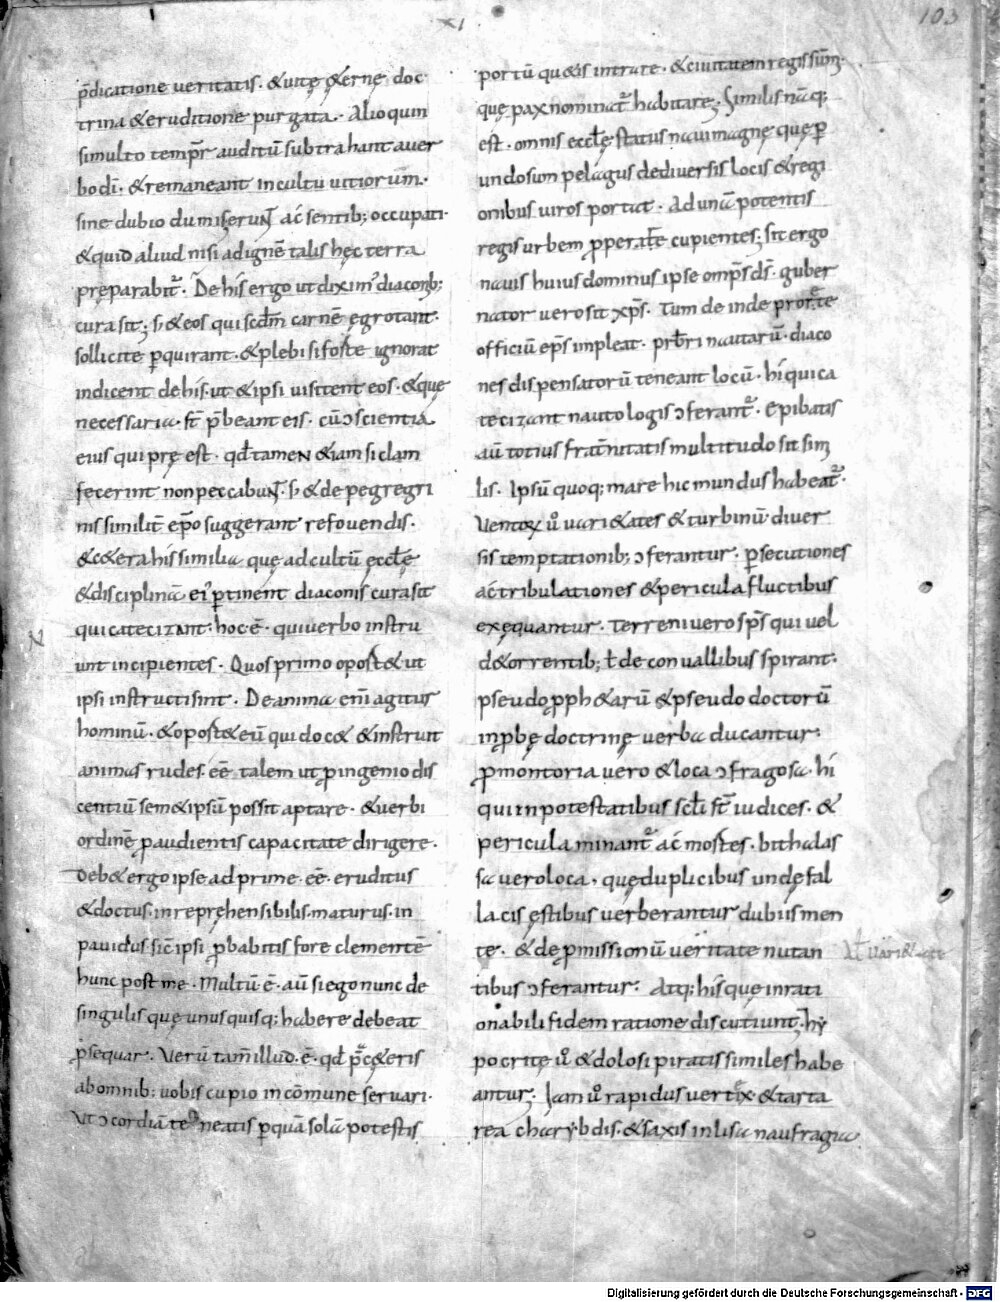 XI
103
p̄dicatione ueritatis. &uitę &ernę doc
trina &eruditione purgata. Alioquin
simulto tempr̄ auditū subtrahant auer
bo dī. &remaneant incultu uitiorum.
sine dubio dumiserunt ac sentib; occupati.
&quid aliud nisi adignē talis hęc terra
pręparabit᷒. De his ergo ut diximꝰ diaconib;
cura sit; s; &eos qui scdm̄ carnē ęgrotant.
sollicite ꝑquirant. &plebi si forte ignorat
indicent de his. ut &ipsi uisitent eos. &que
necessaria. st̄ p̄beant eis. cū ɔscientia
eius qui prę est. qd̄ tamen &iam si clam
fecerint non peccabunt. s; &de pegregri
nis similit̄ ep̄o suggerant refouendis.
&c&era his similia quę ad cultū eccl̄ę
&disciplinā ei᷒ ꝑtinent diaconis cura sit
qui catecizant. hoc ē. qui uerbo instru
unt incipientes. Quos primo oport& ut
ipsi instructi sint. De anima eni᷒ agitur
hominū. &oport& eū qui doc& &instruit
animas rudes. eē talem ut ꝓ ingenio dis
centiū sem&ipsū possit aptare. &uerbi
ordinē ꝓ audientis capacitate dirigere.
Deb& ergo ipse ad prime. eē. eruditus
&doctus. inreprehensibilis. maturus. in
pauidus sic̄ ipsi ꝓbabitis fore clementē
hunc post me. Multū ē. aū si ego nunc de
singulis quę unusquisq; habere debeat
ꝓsequar. Verū tam̄ illud. ē. qd̄ p᷒c&eris
ab omnib; uobis cupio in cōmune seruari.
Vt ɔcordiā teneatis ꝑ quā solā potestis
portū qu&is intrare. &ciuitatem regis sūmi.
quę pax nominat᷒ habitare. Similis nāq;
est. omnis eccl̄ę status naui magnę quę ꝑ
undosum pelagus de diuersis locis &regi
onibus uiros portat. Ad unā potentis
regis urbem ꝓperare cupientes; sit ergo
nauis huius dominus ipse omp̄s ds̄. guber
nator uero sit xp̄s. Tum de inde prorete
officiū ep̄s impleat. prb̄ri nautarū. diaco
nes dispensatorū teneant locū. hi qui ca
tecizant nautologis ɔferant᷒. Epibatis
aū totius frat̄nitatis multitudo sit simi
lis. Ipsū quoq; mare hic mundus habeat᷒.
Ventorū u᷒ uari&ates &turbinū. diuer
sis temptationib; ɔferantur. ꝑsecutiones
ac tribulationes &pericula fluctibus
exęquantur. Terreni uero sp̄s qui uel
d&orrentib; ł de conuallibus spirant.
pseudo ꝓph&arū &pseudo doctorū
inꝓbę doctrinę uerba ducantur.
ꝓmontoria uero &loca ɔfragosa. hi
qui in potestatibus scl̄i st̄ iudices. &
pericula minant᷒ ac mostes. bithalas
sa uero loca. quę duplicibus undę fal
lacis ęstibus uerberantur dubiis men
te. &de ꝓmissionū ueritate nutan
tibus ɔferantur. Atq; his que inrati
onabili fidem ratione discutiunt. hy
pocritę u᷒ &dolosi piratis similes habe
antur. Iam u᷒ rapidus uertex &tarta
rea charybdis. &saxis inlisa naufragia
Digitalisierung gefördert durch die Deutsche Forschungsgemeinschaft - DFG